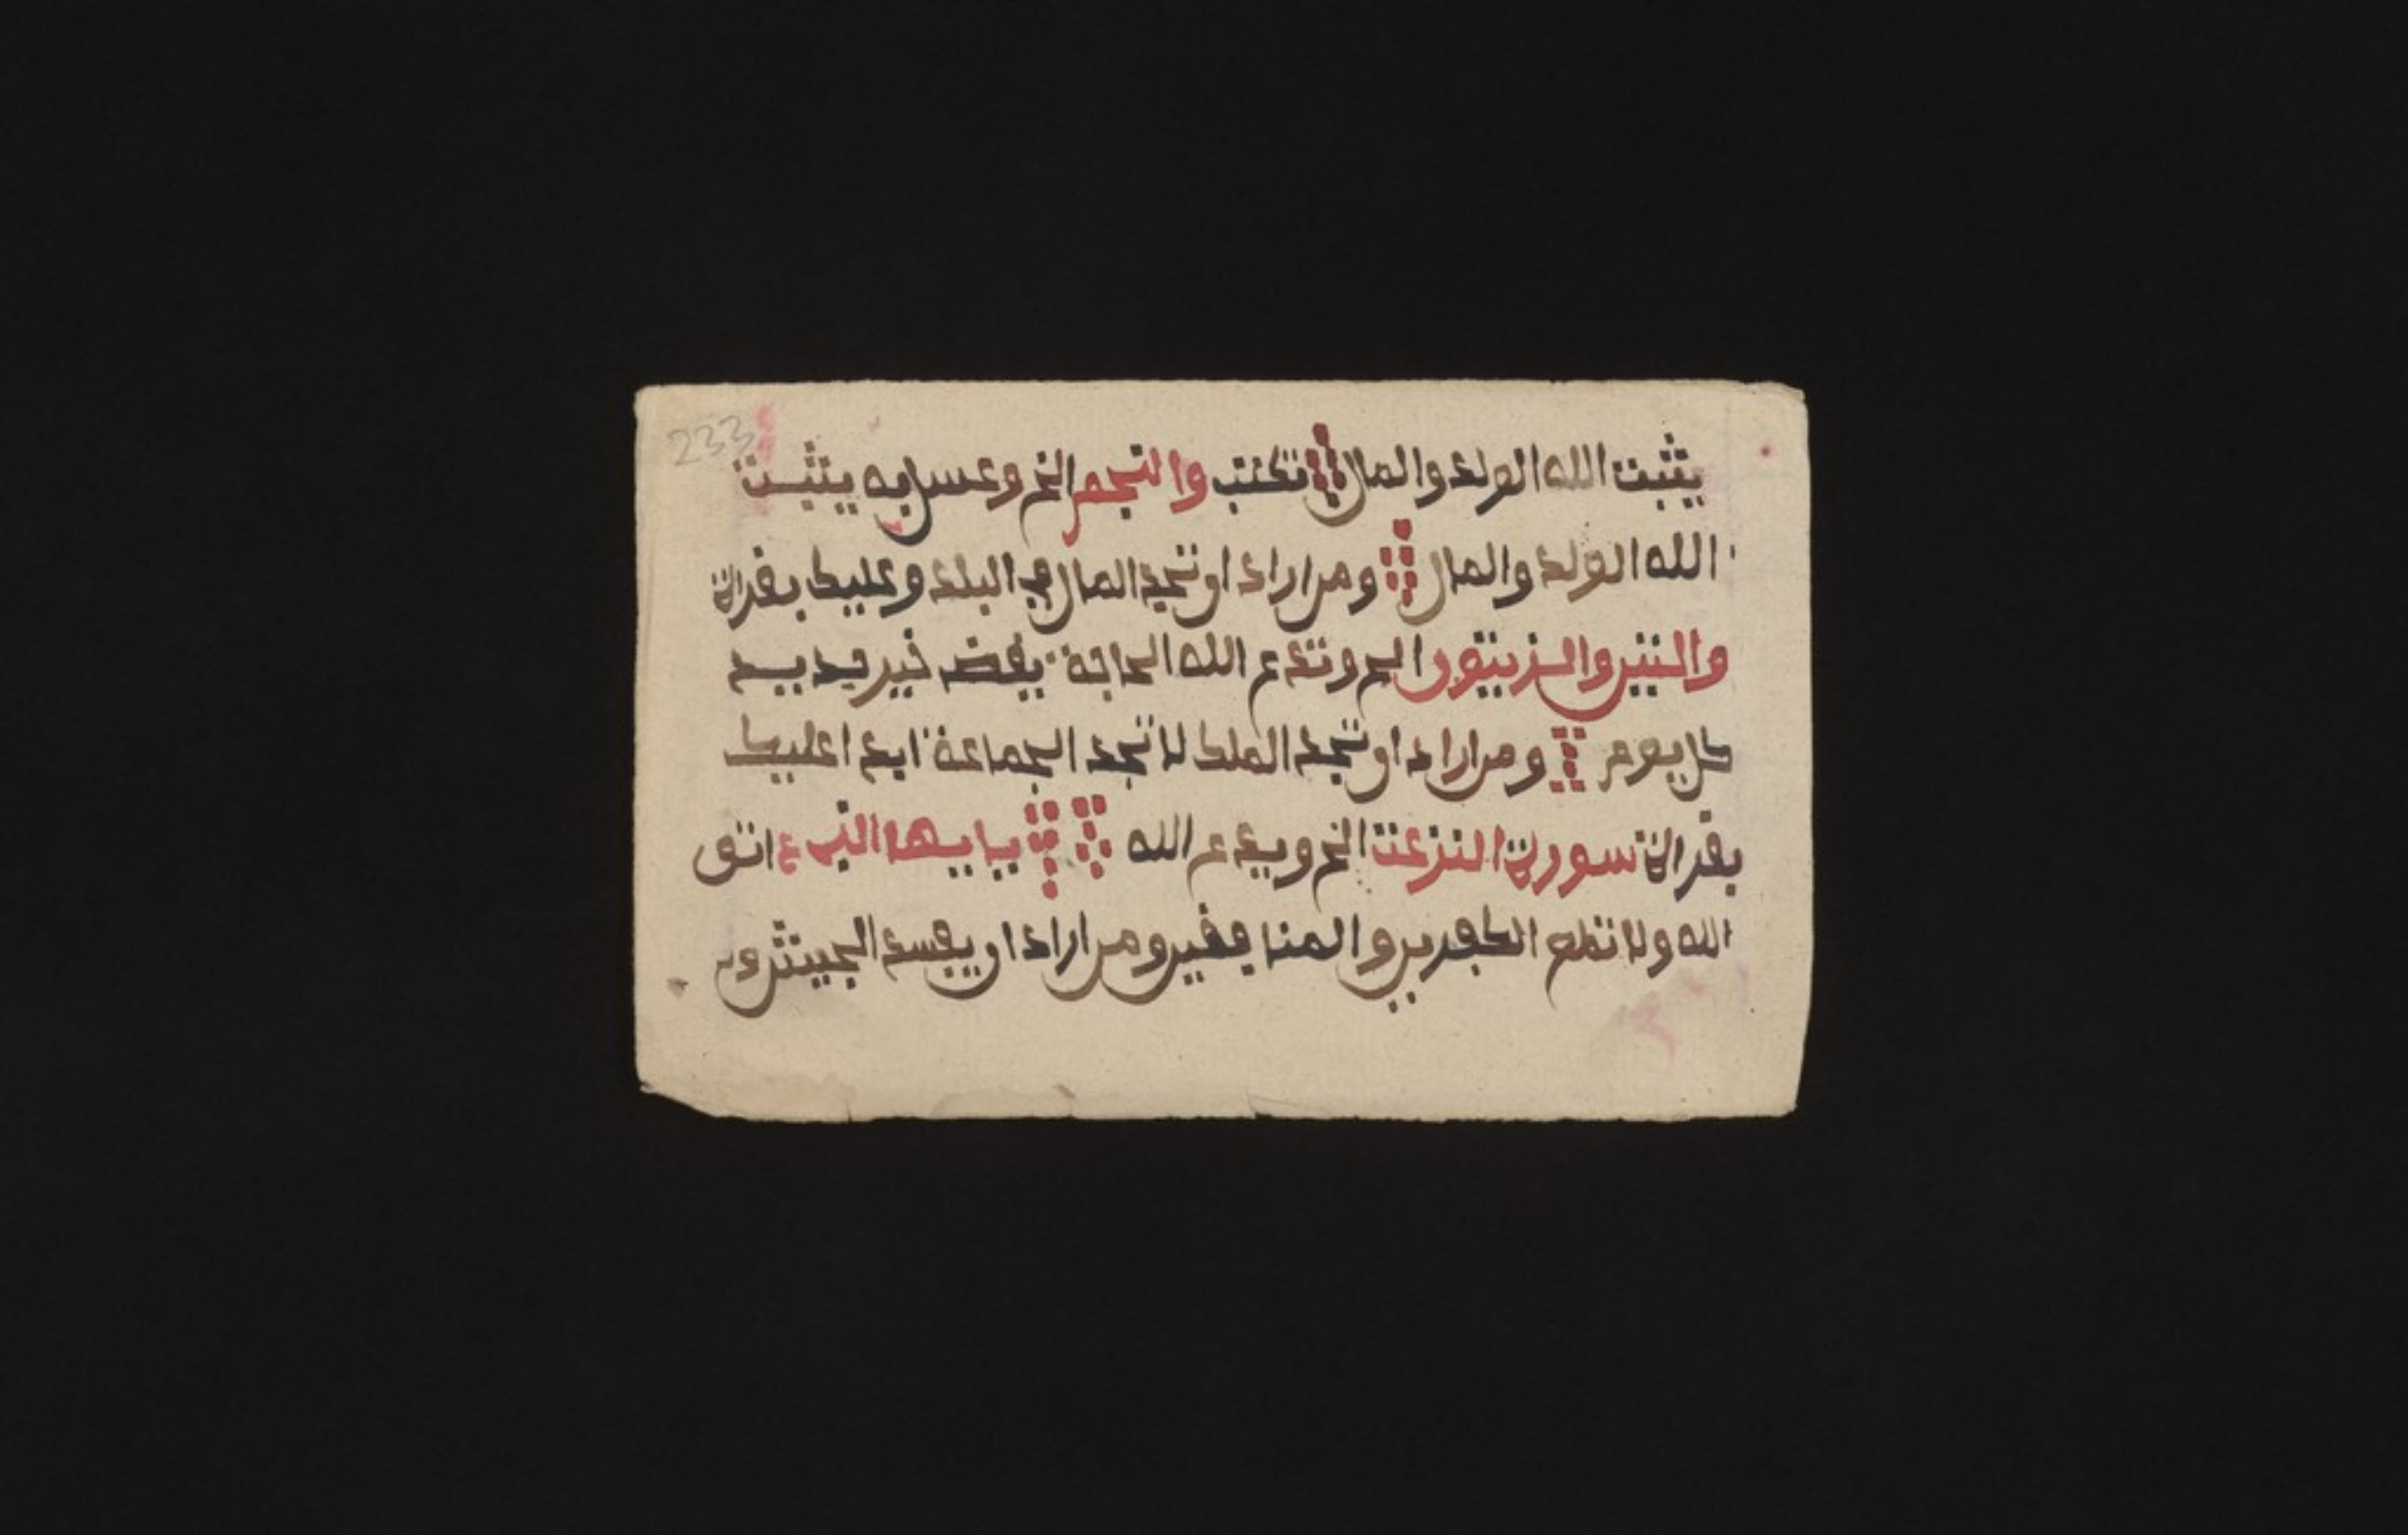 233
يثبت الله الولد والمال تكتب والنجم الخ وغسل به يثبت
الله الولد والمال ومن اراد ان تجد المال في البلد وعليك بقراة
والتين والزيتون الخ وتدع الله الحاجة يقض خير فيد بيد
كل يوم ومن اراد ان تجد الملك لا تجد الجماعة ابدا عليك
بقراة سورة النزعت الخ ويدع الله يايها النبيء اتق
الله ولا تطع الكفرين والمنافقين ومن اراد ان يفسد الجيش